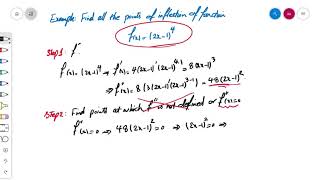 Example: Find all the points of inflection of function
f(x) = (2x-1)^4
Step1: f''
f(x) = (2x-1)^4 → f'(x) = 4(2x-1)'(2x-1)^{4-1} = 8(2x-1)^3
⇒ f''(x) = 8(3(2x-1)'(2x-1)^{3-1}) = 48(2x-1)^2
Step2: Find points at which f'' is not defined or f''(x)=0
f''(x)=0 ⇒ 48(2x-1)^2=0 ⇒ (2x-1)^2=0 ⇒